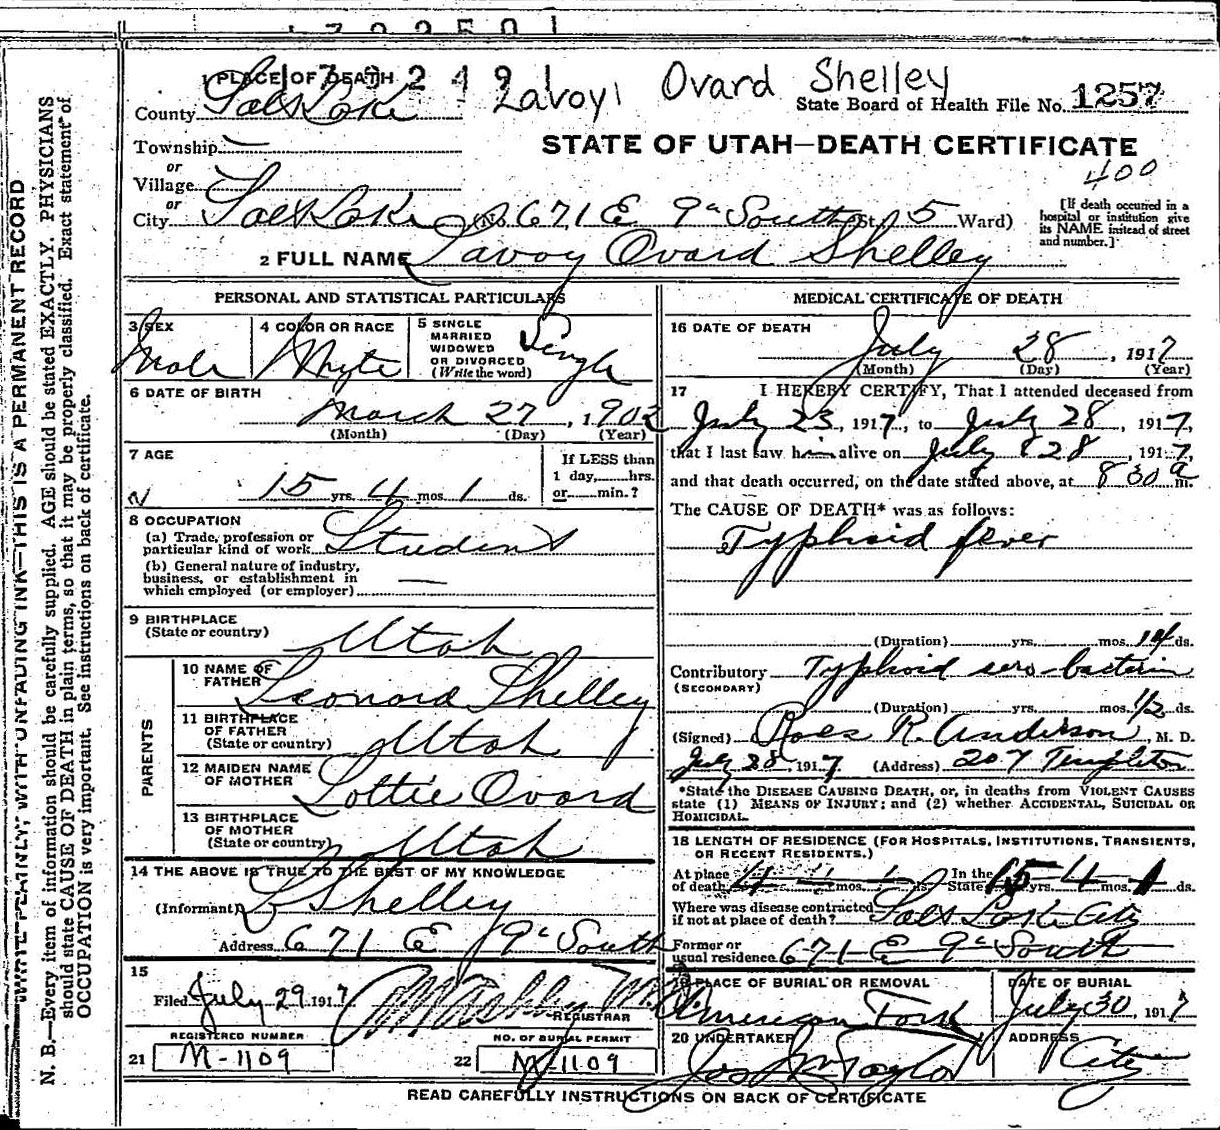 1 PLACE OF DEATH
Lavoyl Ovard Shelley
County Salt Lake
State Board of Health File No. 1257
Township —
STATE OF UTAH—DEATH CERTIFICATE
or
Village
400
or
City Salt Lake (No. 671 E 9" South St. 5 Ward)
[If death occurred in a
hospital or institution give
its NAME instead of street
and number.]
2 FULL NAME Lavoy Ovard Shelley
PERSONAL AND STATISTICAL PARTICULARS
3 SEX
Male
4 COLOR OR RACE
Whyte
5 SINGLE
MARRIED
WIDOWED
OR DIVORCED
(Write the word)
Single
6 DATE OF BIRTH
March 27, 1902
(Month) (Day) (Year)
7 AGE
15 yrs. 4 mos. 1 ds.
If LESS than
1 day, hrs.
or min.?
8 OCCUPATION
(a) Trade, profession or
particular kind of work Student
(b) General nature of industry,
business, or establishment in
which employed (or employer) —
9 BIRTHPLACE
(State or country) Utah
PARENTS
10 NAME OF
FATHER Leonard Shelley
11 BIRTHPLACE
OF FATHER
(State or country) Utah
12 MAIDEN NAME
OF MOTHER Lottie Ovard
13 BIRTHPLACE
OF MOTHER
(State or country) Utah
14 THE ABOVE IS TRUE TO THE BEST OF MY KNOWLEDGE
(Informant) L Shelley
Address 671 E 9" South
15
Filed July 29 1917
REGISTRAR
REGISTERED NUMBER
21 M-1109
NO. OF BURIAL PERMIT
22 M-1109
MEDICAL CERTIFICATE OF DEATH
16 DATE OF DEATH
July 28, 1917
(Month) (Day) (Year)
17 I HEREBY CERTIFY, That I attended deceased from
July 23, 1917, to July 28, 1917,
that I last saw him alive on July 28, 1917,
and that death occurred, on the date stated above, at 8 30 a m.
The CAUSE OF DEATH* was as follows:
Typhoid fever
(Duration) yrs. mos. 14 ds.
Contributory Typhoid sero-bacterin
(SECONDARY)
(Duration) yrs. mos. 1/2 ds.
(Signed) Ross R. Anderson, M. D.
July 28, 1917 (Address) 207 Templeton
*State the DISEASE CAUSING DEATH, or, in deaths from VIOLENT CAUSES
state (1) MEANS OF INJURY; and (2) whether ACCIDENTAL, SUICIDAL OR
HOMICIDAL.
18 LENGTH OF RESIDENCE (FOR HOSPITALS, INSTITUTIONS, TRANSIENTS,
OR RECENT RESIDENTS.)
At place
of death mos. ds. In the
State 15 yrs. 4 mos. 1 ds.
Where was disease contracted
if not at place of death? Salt Lake City
Former or
usual residence 671 E 9" South
19 PLACE OF BURIAL OR REMOVAL
American Fork
DATE OF BURIAL
July 30, 1917
20 UNDERTAKER
Jos Wm Taylor
ADDRESS
City
READ CAREFULLY INSTRUCTIONS ON BACK OF CERTIFICATE
WRITE PLAINLY, WITH UNFADING INK—THIS IS A PERMANENT RECORD
N. B.—Every item of information should be carefully supplied. AGE should be stated EXACTLY. PHYSICIANS
should state CAUSE OF DEATH in plain terms, so that it may be properly classified. Exact statement of
OCCUPATION is very important. See instructions on back of certificate.